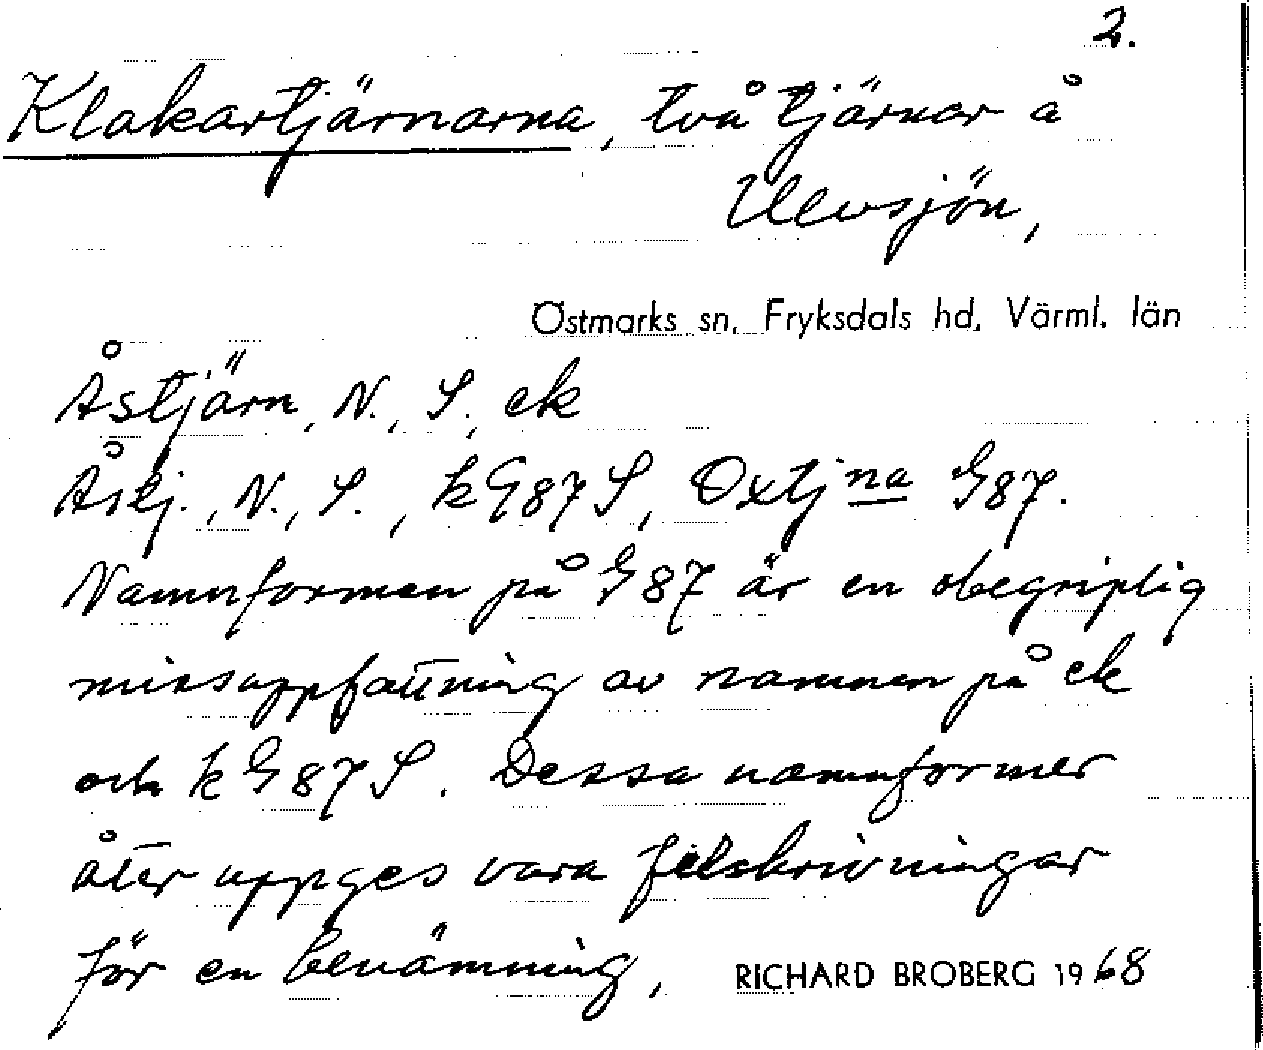 2.
Klakartjärnarna, två tjärnar å
Ulvsjön,
Östmarks sn, Fryksdals hd, Värml. län
Åstjärn, N., S., ek
Åstj., N., S., k G87 S, Oxtjna G87.
Namnformen på G87 är en obegriplig
missuppfattning av namnen på ek
och k G87 S. Dessa namnformer
åter uppges vara felskrivningar
för en benämning,
RICHARD BROBERG 1968